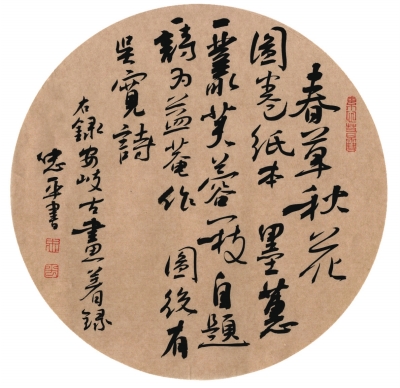 春草秋花
圖卷紙本　墨蕙
一叢芙蓉一枝自題
詩為益菴作　圖後有
吳寬詩
右錄安岐古畫著錄
忠平書